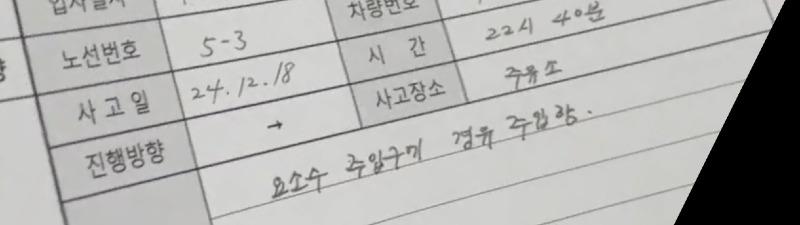 차량번호
노선번호 5-3 시 간 22시 40분
사고일 24.12.18 사고장소 주유소
진행방향 →
요소수 주입구에 경유 주입함.